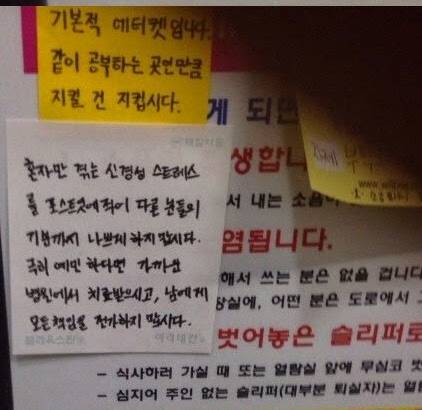 기본적 에티켓입니다.
같이 공부하는 곳인만큼
지킬 건 지킵시다.
혼자만 겪는 신경성 스트레스
를 포스트잇에 적어 다른 분들의
기분까지 나쁘게 하지 맙시다.
극히 예민 하다면 가까운
병원에서 치료받으시고, 남에게
모든책임을 전가하지 맙시다.
게 되면
생합니
서 내는 소음이
염됩니다.
해서 쓰는 분은 없을 겁니다
장실에, 어떤 분은 도로에서
벗어놓은 슬리퍼로
– 식사하러 가실 때 또는 열람실 앞에 무심코 벗
– 심지어 주인 없는 슬리퍼(대부분 퇴실자)는 열